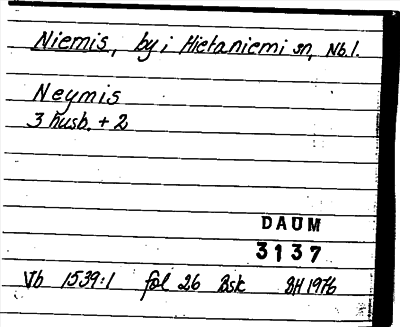 Niemis, by i Hietaniemi sn, Nb.l.
Neymis
3 husb. + 2
DAUM
3137
Vb 1539:1 fol 26 Bsk BH 1976